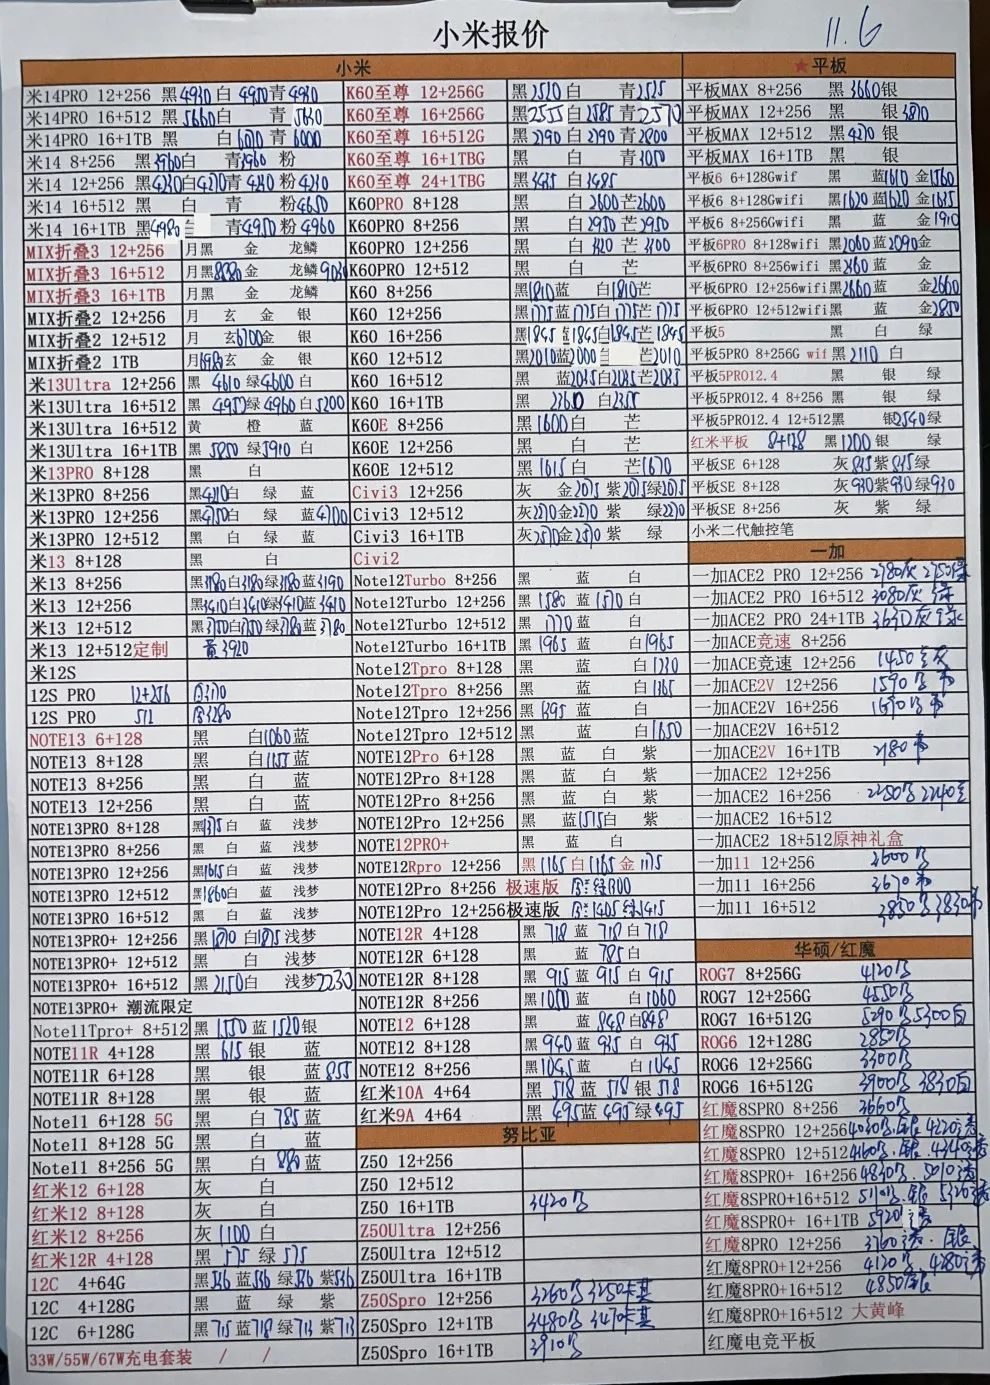 小米报价
11.6
小米
米14PRO 12+256 黑4930 白 4950 青4930
米14PRO 16+512 黑5660 白 青5630
米14PRO 16+1TB 黑 白6010 青6000
米14 8+256 黑3960 白 青3960 粉
米14 12+256 黑4230 白4270 青4230 粉4230
米14 16+512 黑 白 青 粉4650
米14 16+1TB 黑4980 青4950 粉4960
MIX折叠3 12+256 月黑 金 龙鳞
MIX折叠3 16+512 月黑 金 龙鳞
MIX折叠3 16+1TB 月黑 金 龙鳞
MIX折叠2 12+256 月 玄 金 银
MIX折叠2 12+512 月 玄6700 金 银
MIX折叠2 1TB 月 玄 金 银
米13Ultra 12+256 黑 4610 绿4600 白
米13Ultra 16+512 黑 4950 绿 4960 白5200
米13Ultra 16+512 黄 橙 蓝
米13Ultra 16+1TB 黑 5850 绿5910 白
米13PRO 8+128 黑 白
米13PRO 8+256 黑 白 绿 蓝
米13PRO 12+256 黑 白 绿 蓝4700
米13PRO 12+512 黑 白 绿 蓝
米13 8+128 黑 白
米13 8+256 黑3180 白3180 绿3180 蓝3190
米13 12+256 黑3410 白3410 绿3410 蓝3410
米13 12+512 黑3750 白3750 绿3780 蓝3780
米13 12+512定制 黄3920
米12S
12S PRO 12+256
12S PRO 512
NOTE13 6+128 黑 白1060 蓝
NOTE13 8+128 黑 白1155 蓝
NOTE13 8+256 黑 白 蓝
NOTE13 12+256 黑 白 蓝
NOTE13PRO 8+128 黑1375 白 蓝 浅梦
NOTE13PRO 8+256 黑 白 蓝 浅梦
NOTE13PRO 12+256 黑1615 白 蓝 浅梦
NOTE13PRO 12+512 黑1860 白 蓝 浅梦
NOTE13PRO 16+512 黑 白 蓝 浅梦
NOTE13PRO+ 12+256 黑1870 白1875 浅梦
NOTE13PRO+ 12+512 黑 白 浅梦
NOTE13PRO+ 16+512 黑 2150 白 浅梦2230
NOTE13PRO+ 潮流限定
Note11Tpro+ 8+512 黑 1550 蓝1520 银
NOTE11R 4+128 黑 615 银 蓝
NOTE11R 6+128 黑 银 蓝855
NOTE11R 8+128 黑 银 蓝
Note11 6+128 5G 黑 白785 蓝
Note11 8+128 5G 黑 白 蓝
Note11 8+256 5G 黑 白880 蓝
红米12 6+128 灰 白
红米12 8+128 灰 白
红米12 8+256 灰1100 白
红米12R 4+128 黑 575 绿575
12C 4+64G 黑536 蓝536 绿536 紫536
12C 4+128G 黑 蓝 绿 紫
12C 6+128G 黑715 蓝718 绿713 紫713
33W/55W/67W充电套装 / /
K60至尊 12+256G 黑2520 白 青2525
K60至尊 16+256G 黑2555 白2585 青2570
K60至尊 16+512G 黑2790 白2790 青2800
K60至尊 16+1TBG 黑 白 青3050
K60至尊 24+1TBG 黑3485 白3485
K60PRO 8+128 黑 白2600 芒2600
K60PRO 8+256 黑 白2950 芒2950
K60PRO 12+256 黑 白 芒3300
K60PRO 12+512 黑 白 芒
K60 8+256 黑1810 蓝 白1810 芒
K60 12+256 黑1775 蓝1775 白1775 芒1775
K60 16+256 黑1845 蓝1845 白1845 芒1845
K60 12+512 黑2010 蓝2000 芒2010
K60 16+512 黑 蓝2035 白2035 芒2035
K60 16+1TB 黑 白2355
K60E 8+256 黑1600 白 芒
K60E 12+256 黑 白 芒
K60E 12+512 黑1615 白 芒1670
Civi3 12+256 灰 金2015 紫2015 绿2015
Civi3 12+512 灰2270 金2270 紫 绿2270
Civi3 16+1TB 灰2510 金2510 紫 绿
Civi2
Note12Turbo 8+256 黑 蓝 白
Note12Turbo 12+256 黑 1580 蓝 1570 白
Note12Turbo 12+512 黑 1770 蓝 白
Note12Turbo 16+1TB 黑 1965 蓝 白1965
Note12Tpro 8+128 黑 蓝 白1230
Note12Tpro 8+256 黑 蓝 白1365
Note12Tpro 12+256 黑 1395 蓝 白
Note12Tpro 12+512 黑 蓝 白1650
NOTE12Pro 6+128 黑 蓝 白 紫
NOTE12Pro 8+128 黑 蓝 白 紫
NOTE12Pro 8+256 黑 蓝 白 紫
NOTE12Pro 12+256 黑 蓝1515 白 紫
NOTE12PRO+ 黑 蓝 白
NOTE12Rpro 12+256 黑 1165 白1165 金 1175
NOTE12Pro 8+256 极速版
NOTE12Pro 12+256极速版
NOTE12R 4+128 黑 718 蓝 718 白718
NOTE12R 6+128 黑 蓝 785 白
NOTE12R 8+128 黑 915 蓝 915 白 915
NOTE12R 8+256 黑1050 蓝 白1060
NOTE12 6+128 黑 蓝 848 白848
NOTE12 8+128 黑 940 蓝 935 白 935
NOTE12 8+256 黑1045 蓝 白1045
红米10A 4+64 黑518 蓝 518 银518
红米9A 4+64 黑495 蓝 495 绿495
努比亚
Z50 12+256
Z50 12+512
Z50 16+1TB 3420
Z50Ultra 12+256
Z50Ultra 12+512
Z50Ultra 16+1TB
Z50Spro 12+256 3260 3250
Z50Spro 12+1TB 3480 3470
Z50Spro 16+1TB 3910
★平板
平板MAX 8+256 黑 3660 银
平板MAX 12+256 黑 银3870
平板MAX 12+512 黑4270 银
平板MAX 16+1TB 黑 银
平板6 6+128Gwif 黑 蓝1610 金1560
平板6 8+128Gwifi 黑1620 蓝1620 金1635
平板6 8+256Gwifi 黑 蓝 金1910
平板6PRO 8+128wifi 黑2060 蓝2090 金
平板6PRO 8+256wifi 黑2360 蓝 金
平板6PRO 12+256wifi 黑2660 蓝 金2660
平板6PRO 12+512wifi 黑 蓝 金2850
平板5 黑 白 绿
平板5PRO 8+256G wif 黑 2110 白
平板5PRO12.4 黑 银 绿
平板5PRO12.4 8+256 黑 银 绿
平板5PRO12.4 12+512 黑 银2540 绿
红米平板 8+128 黑1200 银 绿
平板SE 6+128 灰 815 紫815 绿
平板SE 8+128 灰930 紫930 绿930
平板SE 8+256 灰 紫 绿
小米二代触控笔
一加
一加ACE2 PRO 12+256 2780灰 2750绿
一加ACE2 PRO 16+512 3080灰 绿
一加ACE2 PRO 24+1TB 3630灰
一加ACE竞速 8+256
一加ACE竞速 12+256 1450
一加ACE2V 12+256 1590
一加ACE2V 16+256
一加ACE2V 16+512
一加ACE2V 16+1TB 2180
一加ACE2 12+256
一加ACE2 16+256 2250 2240
一加ACE2 16+512
一加ACE2 18+512原神礼盒
一加11 12+256 2600
一加11 16+256 3670
一加11 16+512 3830 3830
华硕/红魔
ROG7 8+256G 4120
ROG7 12+256G 4550
ROG7 16+512G 5290 5300白
ROG6 12+128G 2850
ROG6 12+256G 3300
ROG6 16+512G 3900 3830白
红魔8SPRO 8+256 3660
红魔8SPRO 12+256 4220
红魔8SPRO 12+512 4160
红魔8SPRO+ 16+256 4830 5010
红魔8SPRO+16+512 5110
红魔8SPRO+ 16+1TB 5920
红魔8PRO 12+256 3760
红魔8PRO+12+256 4120 4280
红魔8PRO+16+512 4850
红魔8PRO+16+512 大黄峰
红魔电竞平板